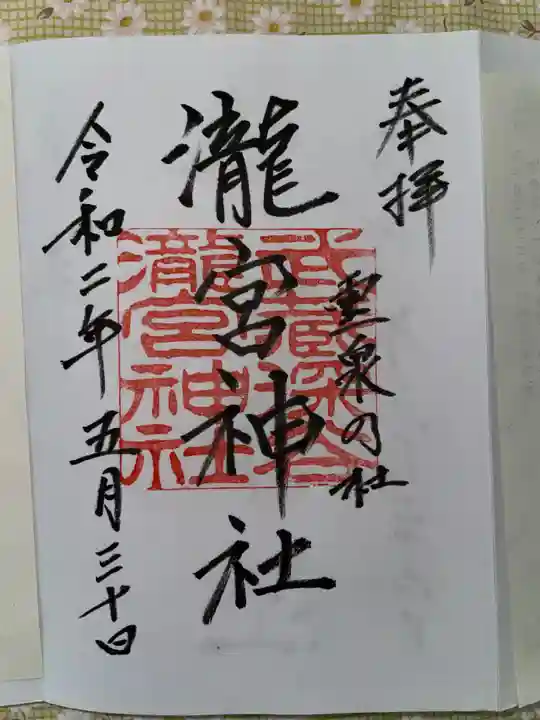 奉拝
霊泉の社
瀧宮神社
武蔵深谷
瀧宮神社
令和二年五月三十日